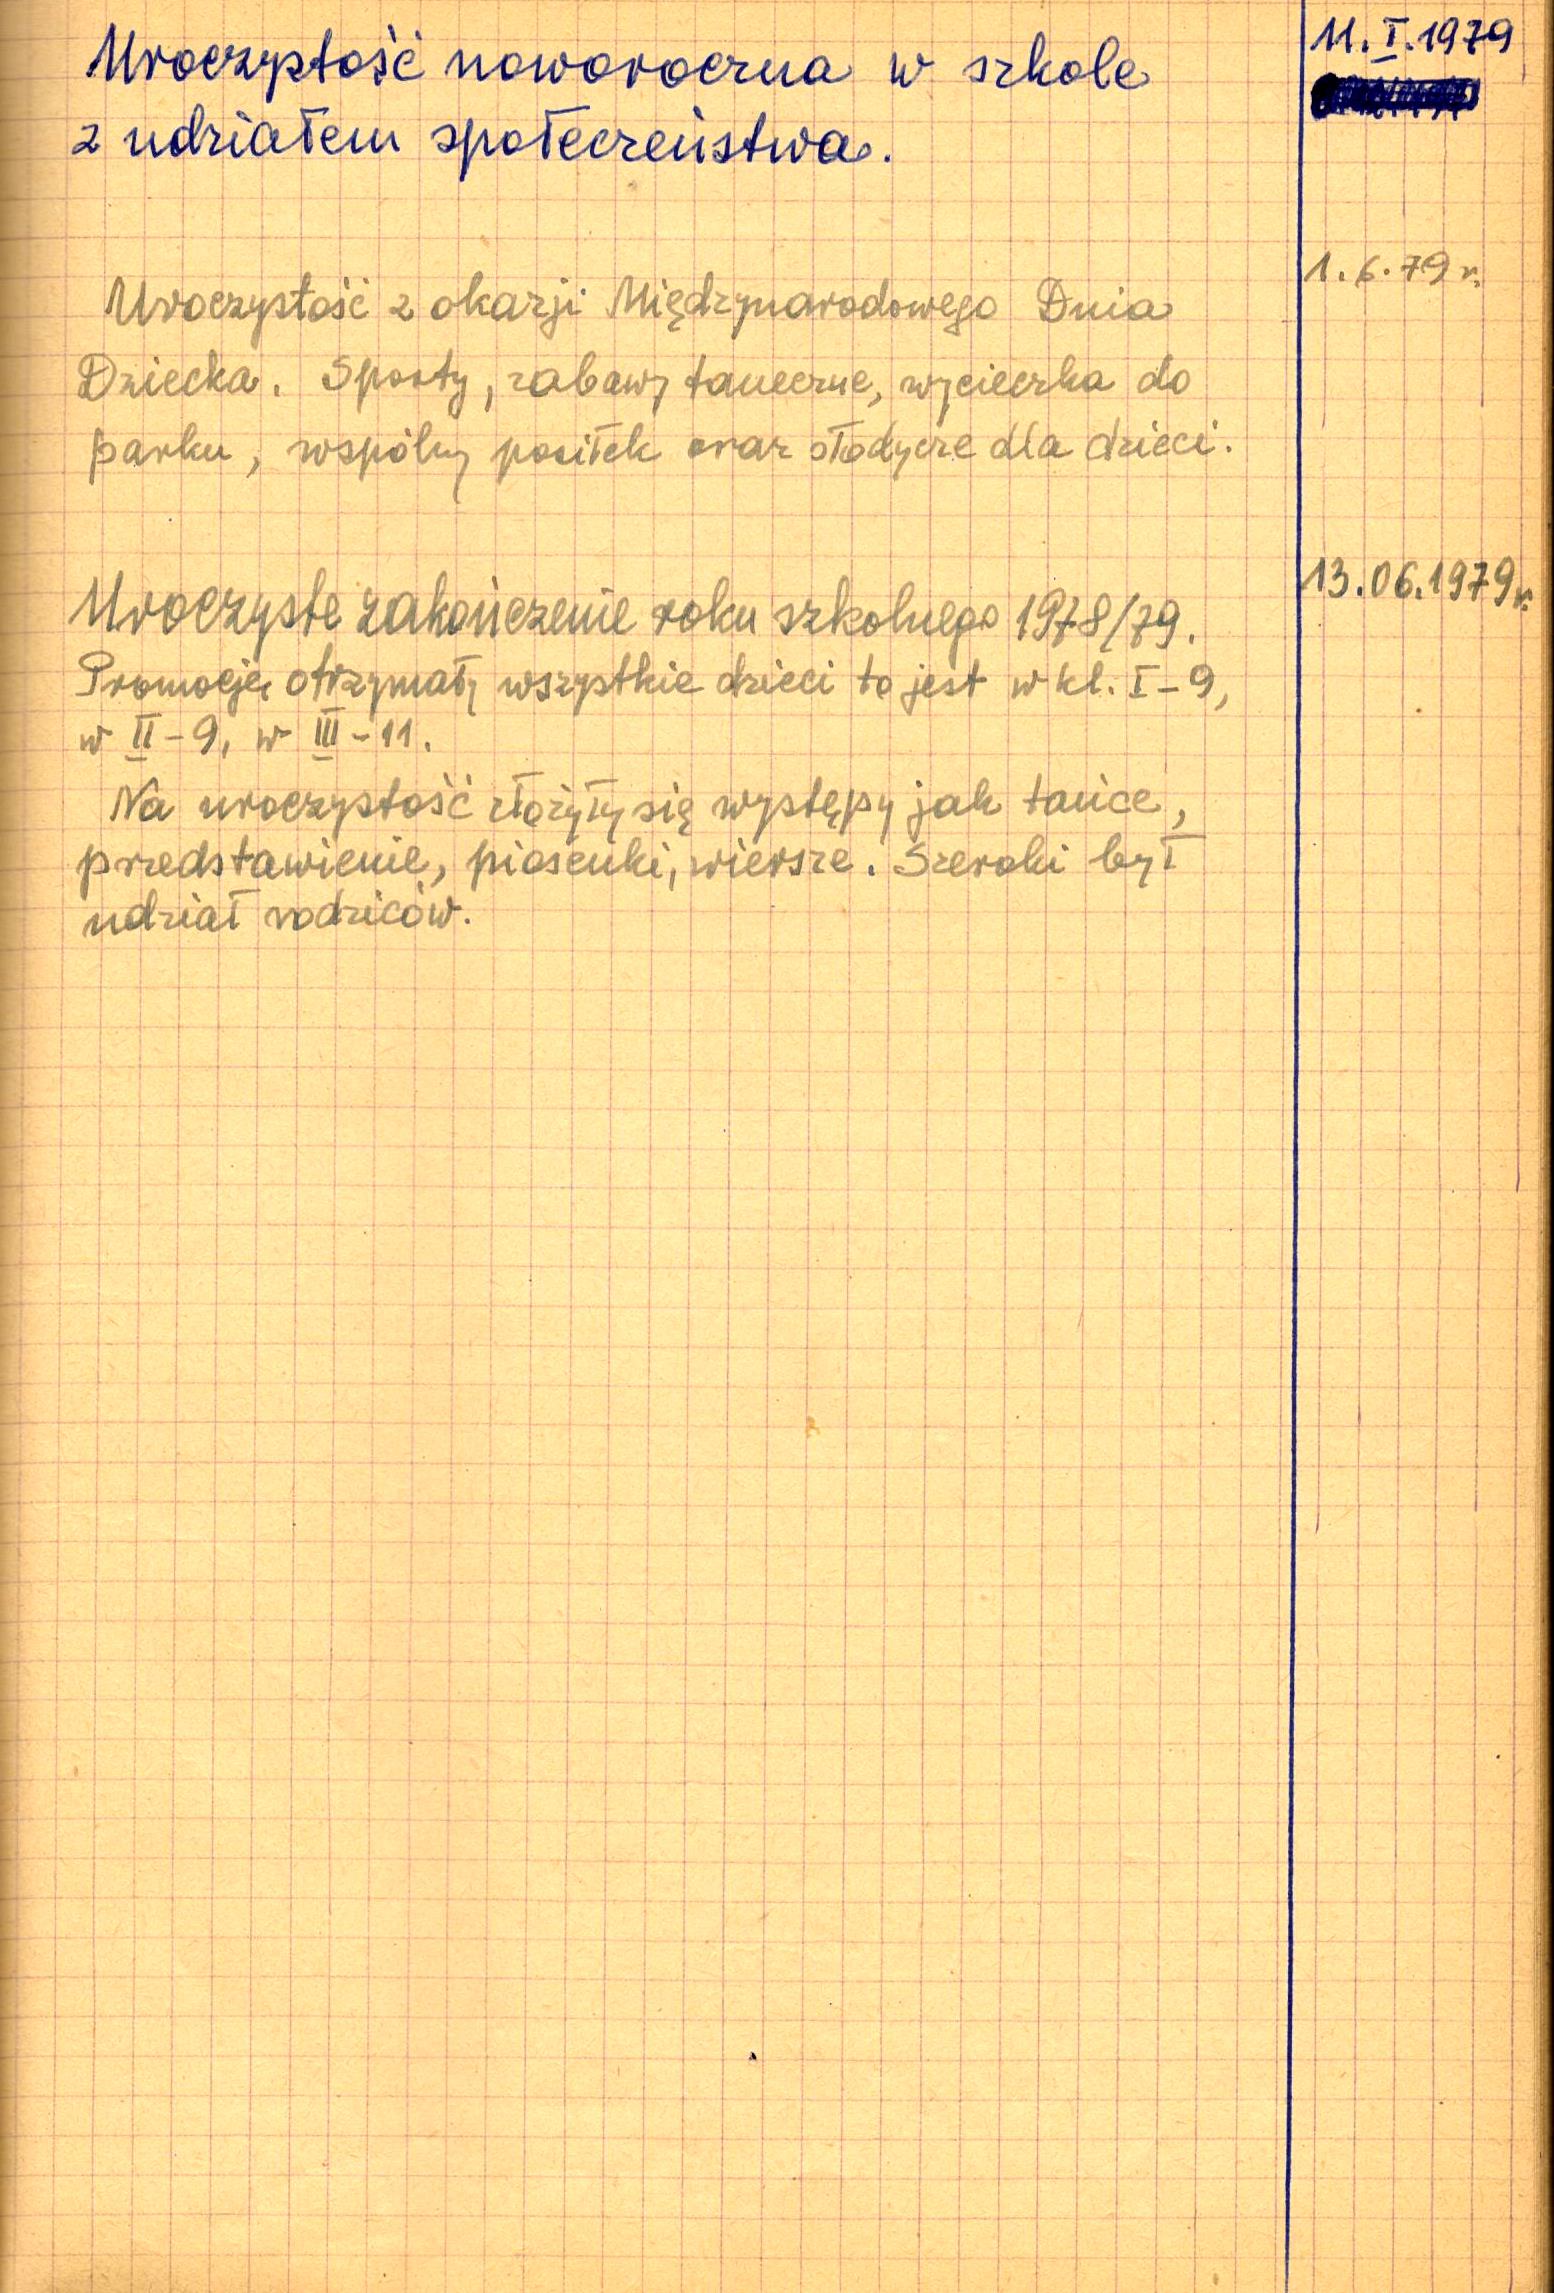 Uroczystość noworoczna w szkole
z udziałem społeczeństwa.
11. I. 1979
Uroczystość z okazji Międzynarodowego Dnia
Dziecka. Sporty, zabawy taneczne, wycieczka do
parku, wspólny posiłek oraz słodycze dla dzieci.
1.6.79 r.
Uroczyste zakończenie roku szkolnego 1978/79.
Promocję otrzymały wszystkie dzieci to jest w kl. I-9,
w II-9, w III-11.
Na uroczystość złożyły się występy jak tańce,
przedstawienie, piosenki, wiersze. Szeroki był
udział rodziców.
13.06.1979 r.